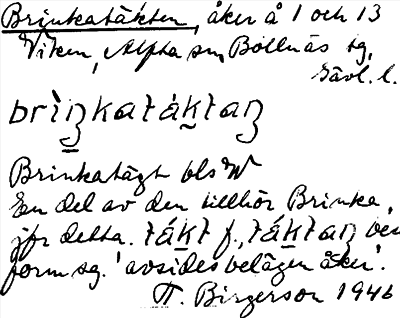 Brinkatäkten, åker å 1 och 13
Viken, Alfta sn, Bollnäs tg,
Gävl. l.
brìŋkatáktaŋ
Brinkatägt bls
En del av den tillhör Brinka,
jfr detta. tákt f., táktaŋ
form sg. 'avsides belägen åker'.
Birgerson 1946